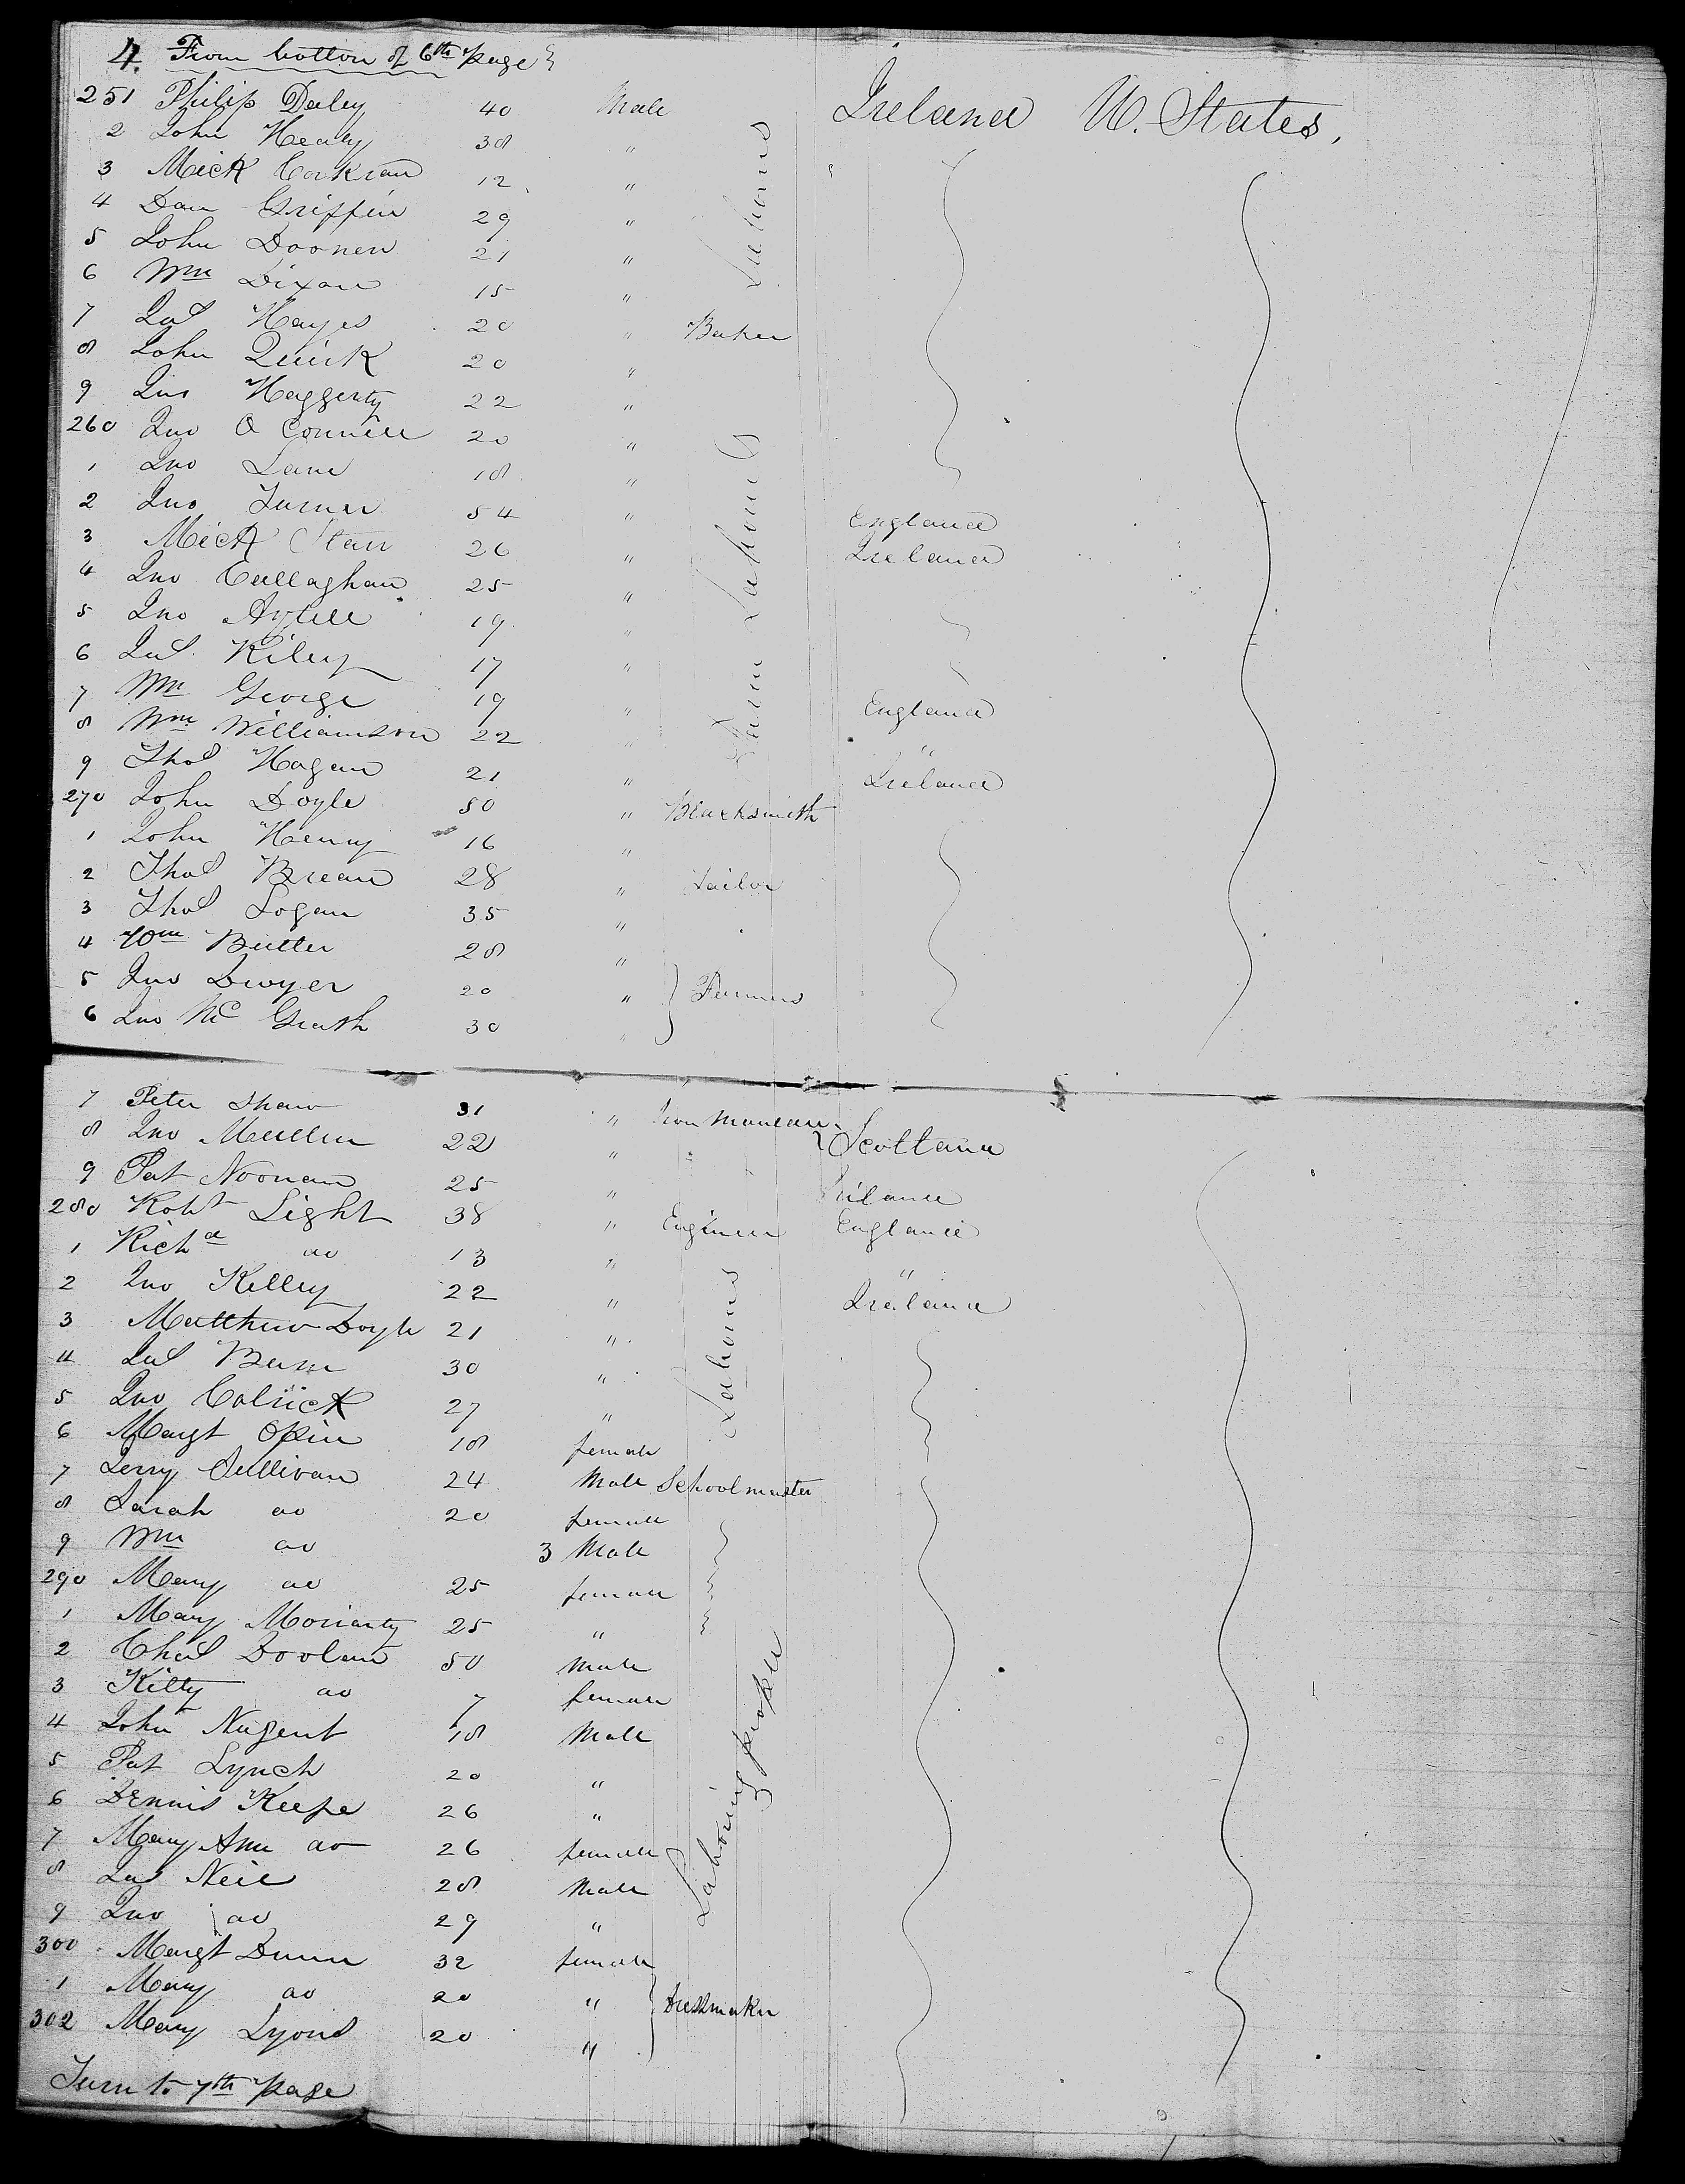 4. From bottom of 6th page
251 Philip Daley 40 Male Ireland U. States,
2 John Healy 38 "
3 Mick Corkran 12 "
4 Dan Griffin 29 "
5 John Doonen 21 "
6 Wm Dixon 15 "
7 Jas Hayes 20 " Baker
8 John Quirk 20 "
9 Jno Haggerty 22 "
260 Jno O Connell 20 "
1 Jno Lane 18 "
2 Jno Turner 54 " England
3 Mick Starr 26 " Ireland
4 Jno Callaghan 25 "
5 Jno 19 "
6 Jas Kiley 17 "
7 Wm George 19 " England
8 Wm Williamson 22 " "
9 Thos Hagan 21 " Ireland
Farm Labourers
270 John Doyle 50 " Blacksmith
1 John Henry 16 "
2 Thos Brean 28 " Tailor
3 Thos Logan 35 "
4 Wm Butler 28 "
5 Jno Dwyer 20 " Farmers
6 Jno Mc Grath 30 "
7 Peter Shaw 31 " Scotland
8 Jno Mullin 22 "
9 Pat Noonan 25 " Ireland
280 Robt Light 38 " Engineer England
1 Richd do 13 " "
2 Jno Kelley 22 " Ireland
3 Matthew Doyle 21 "
4 Jas 30 "
5 Jno 27 "
Labourers
6 Margt 18 female
7 Jerry Sullivan 24 Male Schoolmaster
8 Sarah do 20 female
9 Wm do 3 Male
290 Mary do 25 female
1 Mary Moriarty 25 "
2 Chas Doolan 50 Male
3 Kitty do 7 female
4 John Nugent 18 Male
5 Pat Lynch 20 "
6 Dennis Keefe 26 "
7 Mary Ann do 26 female
8 Jas Neil 28 Male
9 Jno do 29 "
Labouring people
300 Margt Dunn 32 female
1 Mary do 20 " Dressmaker
302 Mary Lyons 20 "
Turn to 7th page